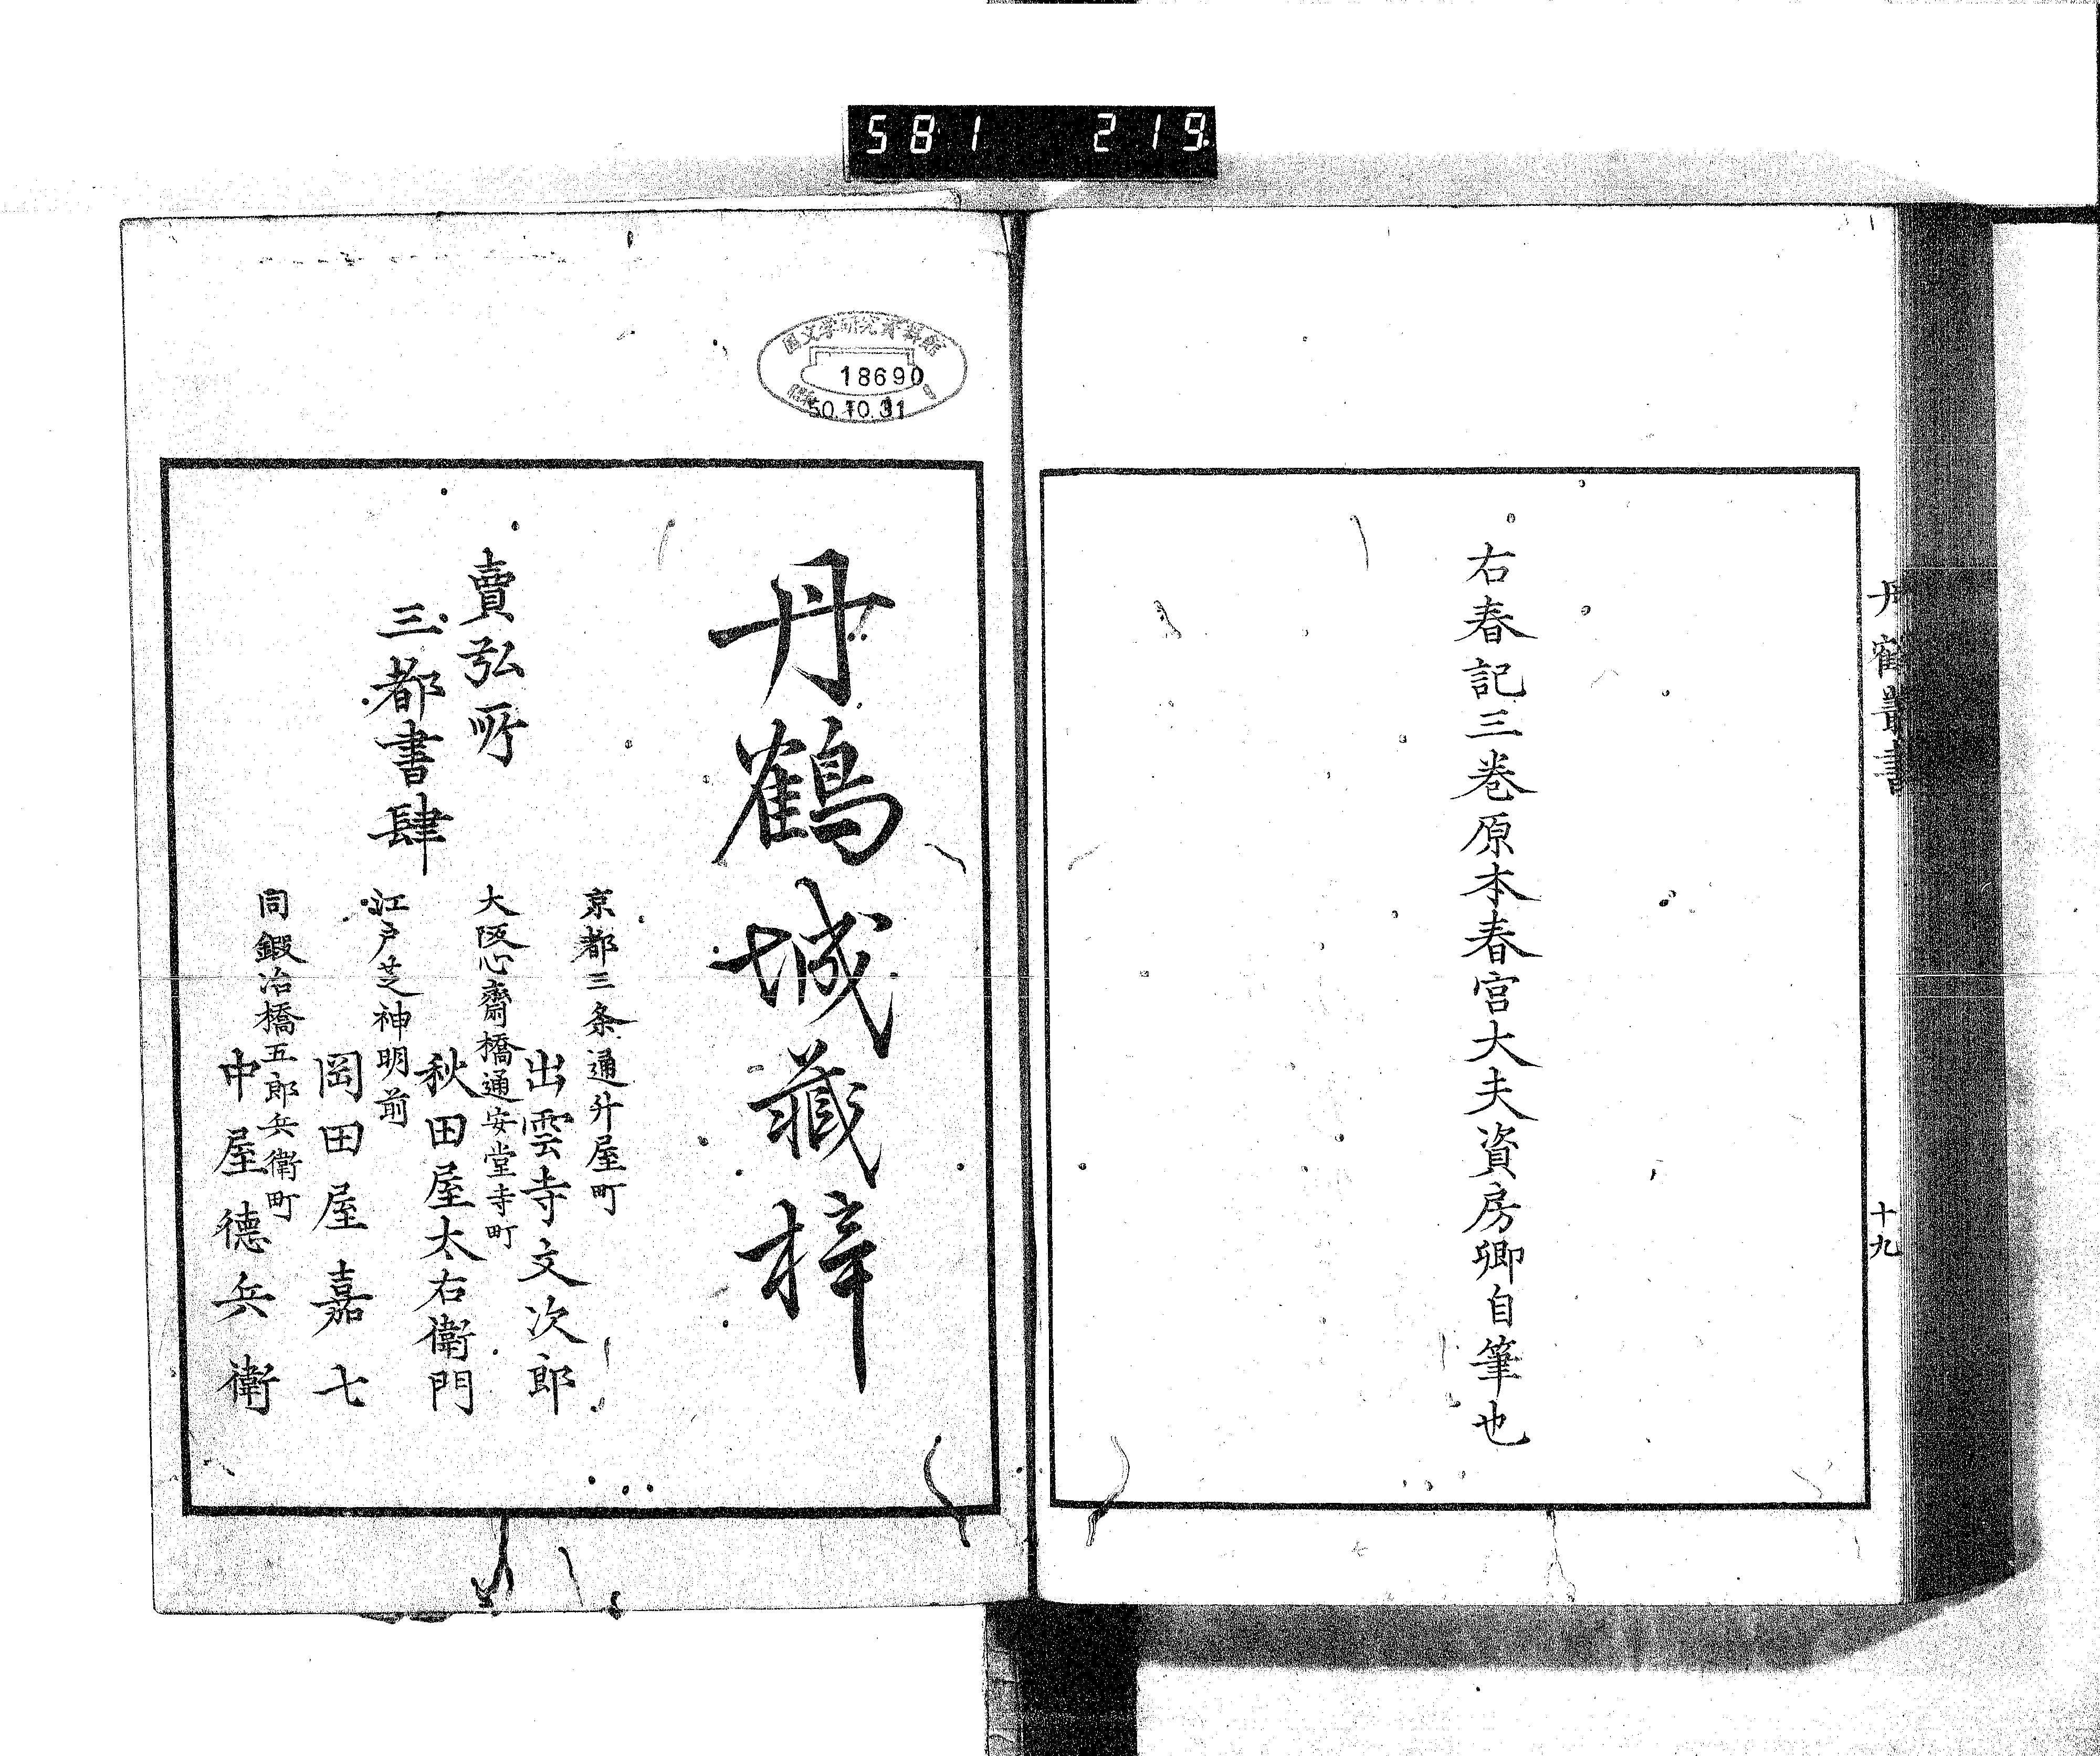 581 219
右春記三巻原本春宮大夫資房卿自筆也
丹鶴叢書
十九
国文学研究資料館
18690
昭和
50.10.31
丹鶴城蔵梓
京都三条通升屋町
出雲寺文次郎
大阪心齋橋通安堂寺町
秋田屋太右衛門
江戸芝神明前
岡田屋嘉七
同鍜冶橋五郎兵衛町
中屋德兵衛
賣弘所
三都書肆